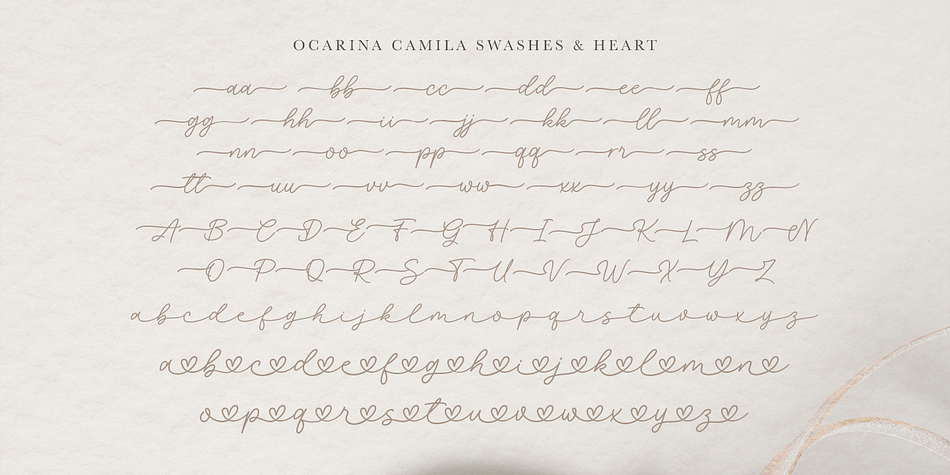 OCARINA CAMILA SWASHES & HEART
aa bb cc dd ee ff
gg hh ii jj kk ll mm
nn oo pp qq rr ss
tt uu vv ww xx yy zz
A B C D E F G H I J K L M N
O P Q R S T U V W X Y Z
abcdefghijklmnopqrstuvwxyz
a♡b♡c♡d♡e♡f♡g♡h♡i♡j♡k♡l♡m♡n♡
o♡p♡q♡r♡s♡t♡u♡v♡w♡x♡y♡z♡